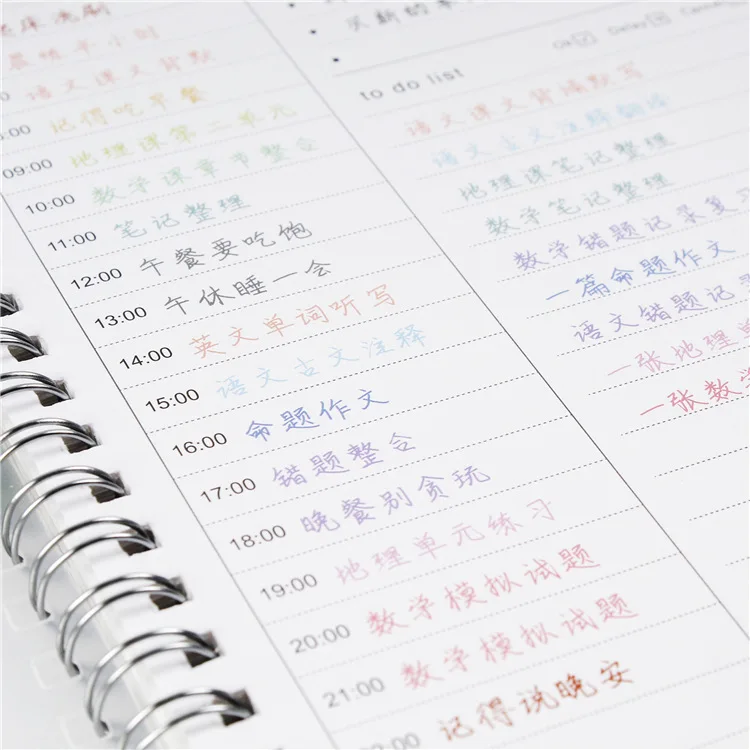 床洗刷
晨练半小时
语文课文背默
记得吃早餐
09:00 地理课第二单元
10:00 数学课章节整合
11:00 笔记整理
12:00 午餐要吃饱
13:00 午休睡一会
14:00 英文单词听写
15:00 语文古文注释
16:00 命题作文
17:00 错题整合
18:00 晚餐别贪玩
19:00 地理单元练习
20:00 数学模拟试题
21:00 数学模拟试题
记得说晚安
买新的
Ok Delay Cancel
to do list
语文课文背诵默写
语文古文注释翻译
地理课笔记整理
数学笔记整理
数学错题记录复习
一篇命题作文
语文错题记录
一张地理单
一张数学